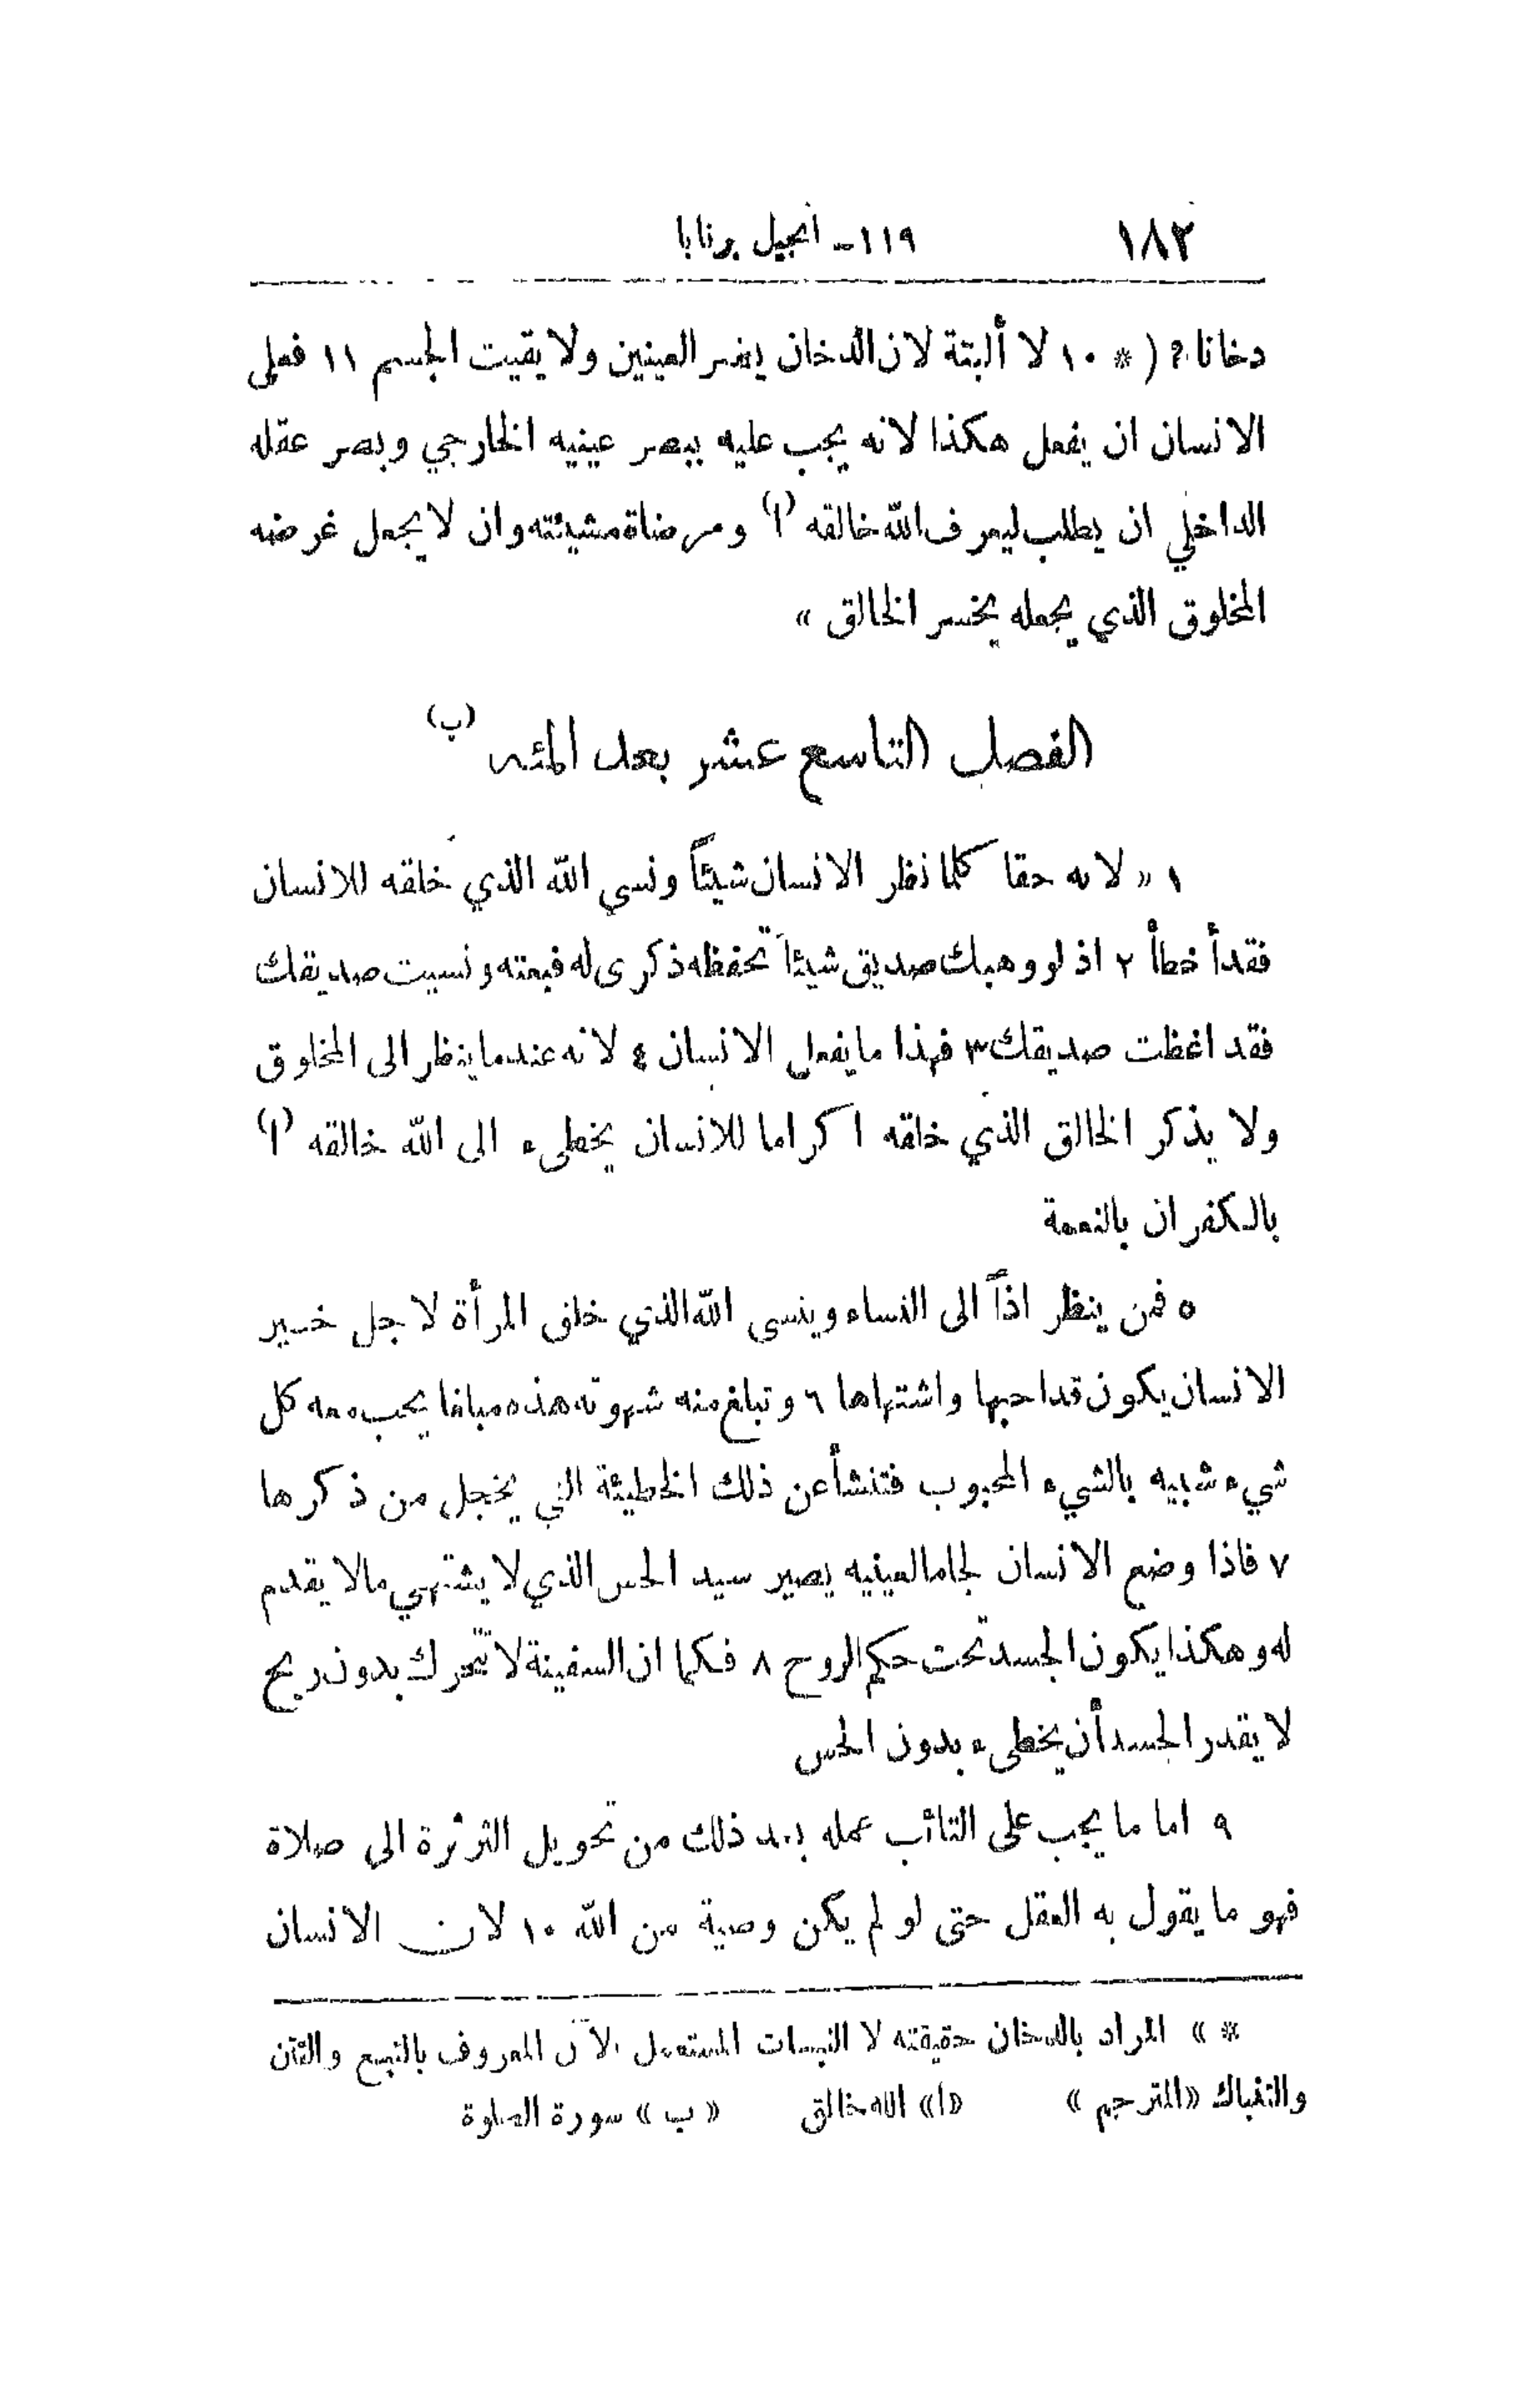 ١٨٢ ١١٩ - انجيل برنابا
دخانا ? ( * ١٠ لا ألبتة لان الدخان يضر العينين ولا يقيت الجسم ١١ فعلى
الانسان ان يفعل هكذا لانه يجب عليه ببصر عينيه الخارجي وبصر عقله
الداخلي ان يطلب ليعرف الله خالقه (ا) ومرضاة مشيئته وان لا يجعل غرضه
المخلوق الذي يجعله يخسر الخالق »
الفصل التاسع عشر بعد المئة (ب)
١ « لانه حقا كلما نظر الانسان شيئاً ونسي الله الذي خلقه للانسان
فقد أخطأ ٢ اذ لو وهبك صديق شيئاً تحفظه ذكرى له فبعته ونسيت صديقك
فقد اغظت صديقك ٣ فهذا ما يفعل الانسان ٤ لانه عندما ينظر الى المخلوق
ولا يذكر الخالق الذي خلقه اكراما للانسان يخطىء الى الله خالقه (ا)
بالكفران بالنعمة
٥ فمن ينظر اذاً الى النساء وينسى الله الذي خلق المرأة لاجل خير
الانسان يكون قد احبها واشتهاها ٦ وتبلغ منه شهوته هذه مبلغا يحب معه كل
شيء شبيه بالشيء المحبوب فتنشأ عن ذلك الخطيئة التي يخجل من ذكرها
٧ فاذا وضع الانسان لجاما لعينيه يصير سيد الحس الذي لا يشتهي مالا يقدم
له وهكذا يكون الجسد تحت حكم الروح ٨ فكما ان السفينة لا تتحرك بدون ريح
لا يقدر الجسد أن يخطىء بدون الحس
٩ اما ما يجب على التائب عمله بعد ذلك من تحويل الثرثرة الى صلاة
فهو ما يقول به العقل حتى لو لم يكن وصية من الله ١٠ لان الانسان
* » المراد بالدخان حقيقته لا النبات المستعمل الآن المعروف بالتبغ والتتن
والتنباك « المترجم » « ا » الله خالق « ب » سورة الصلوة